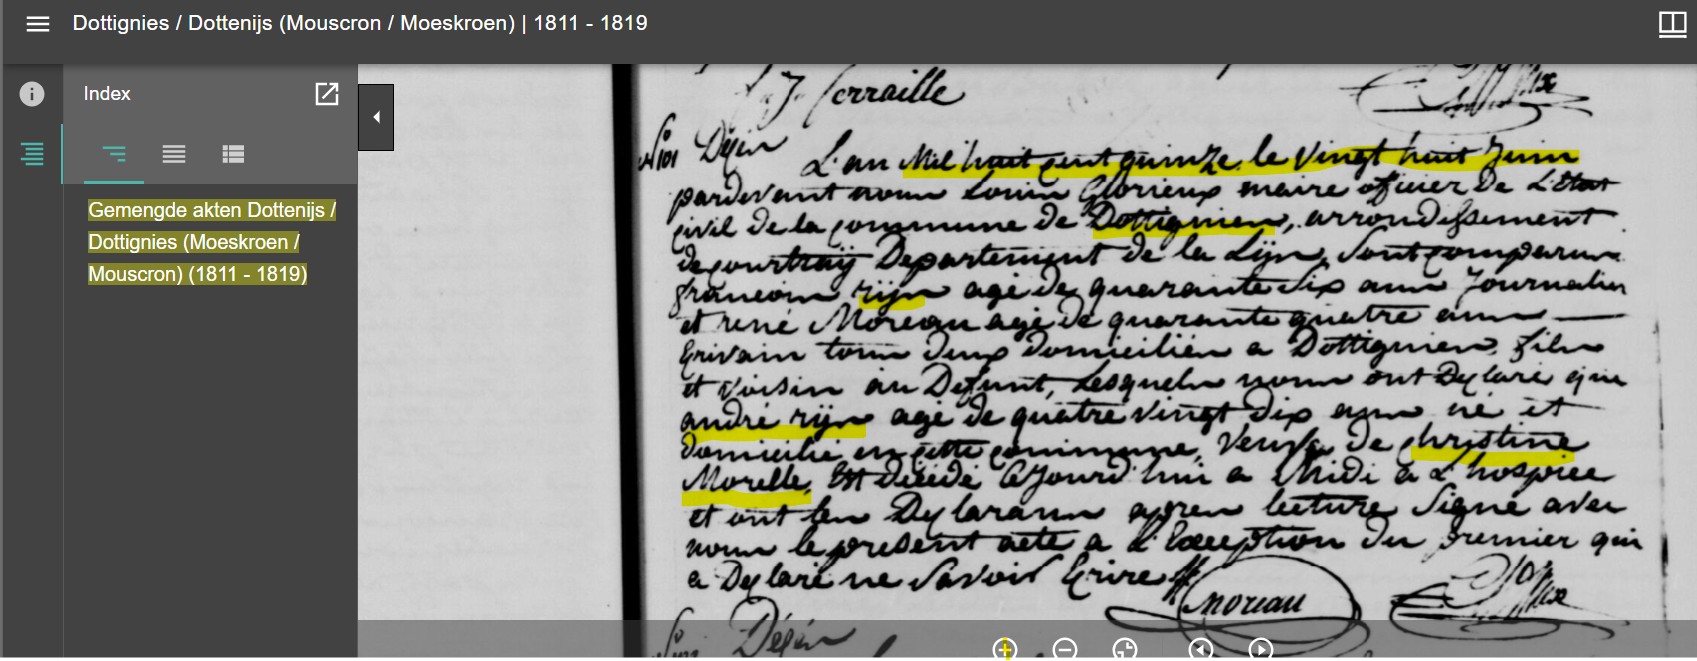 Dottignies / Dottenijs (Mouscron / Moeskroen) | 1811 - 1819
Index
Gemengde akten Dottenijs /
Dottignies (Moeskroen /
Mouscron) (1811 - 1819)
J Serraille
N° 101 Déjén
L'an Mil huit cent quinze le vingt huit Juin
pardevant nous Louis Glorieux maire officier de L'état
civil de la commune de Dottignies, arrondissement
de courtray Departement de la Lijs, sont comparus
francois rijs agé de quarante six ans Journalier
et rené Moreau agé de quarante quatre ans
Ecrivain tous deux domiciliés a Dottignies, fils
et voisin au Defunt, Lesquels nous ont Déclaré que
andré rijs agé de quatre vingt dix ans né et
domicilié en cette commune, veuf de christine
Morelle, Est décédé cejourd'hui a Midi à L'hospice
et ont les Déclarans apres lecture signé avec
nous le present acte a L'Exception du premier qui
a Déclaré ne savoir Ecrire
moreau
Déjén